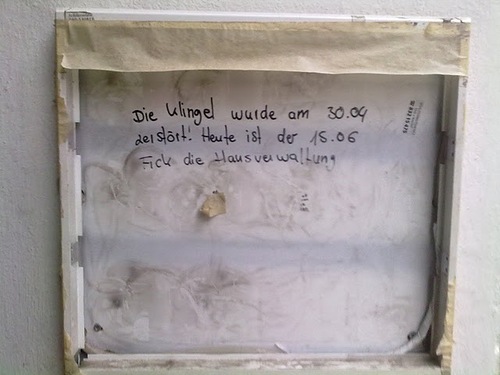 Die Klingel wurde am 30.04
zerstört! Heute ist der 15.06
Fick die Hausverwaltung